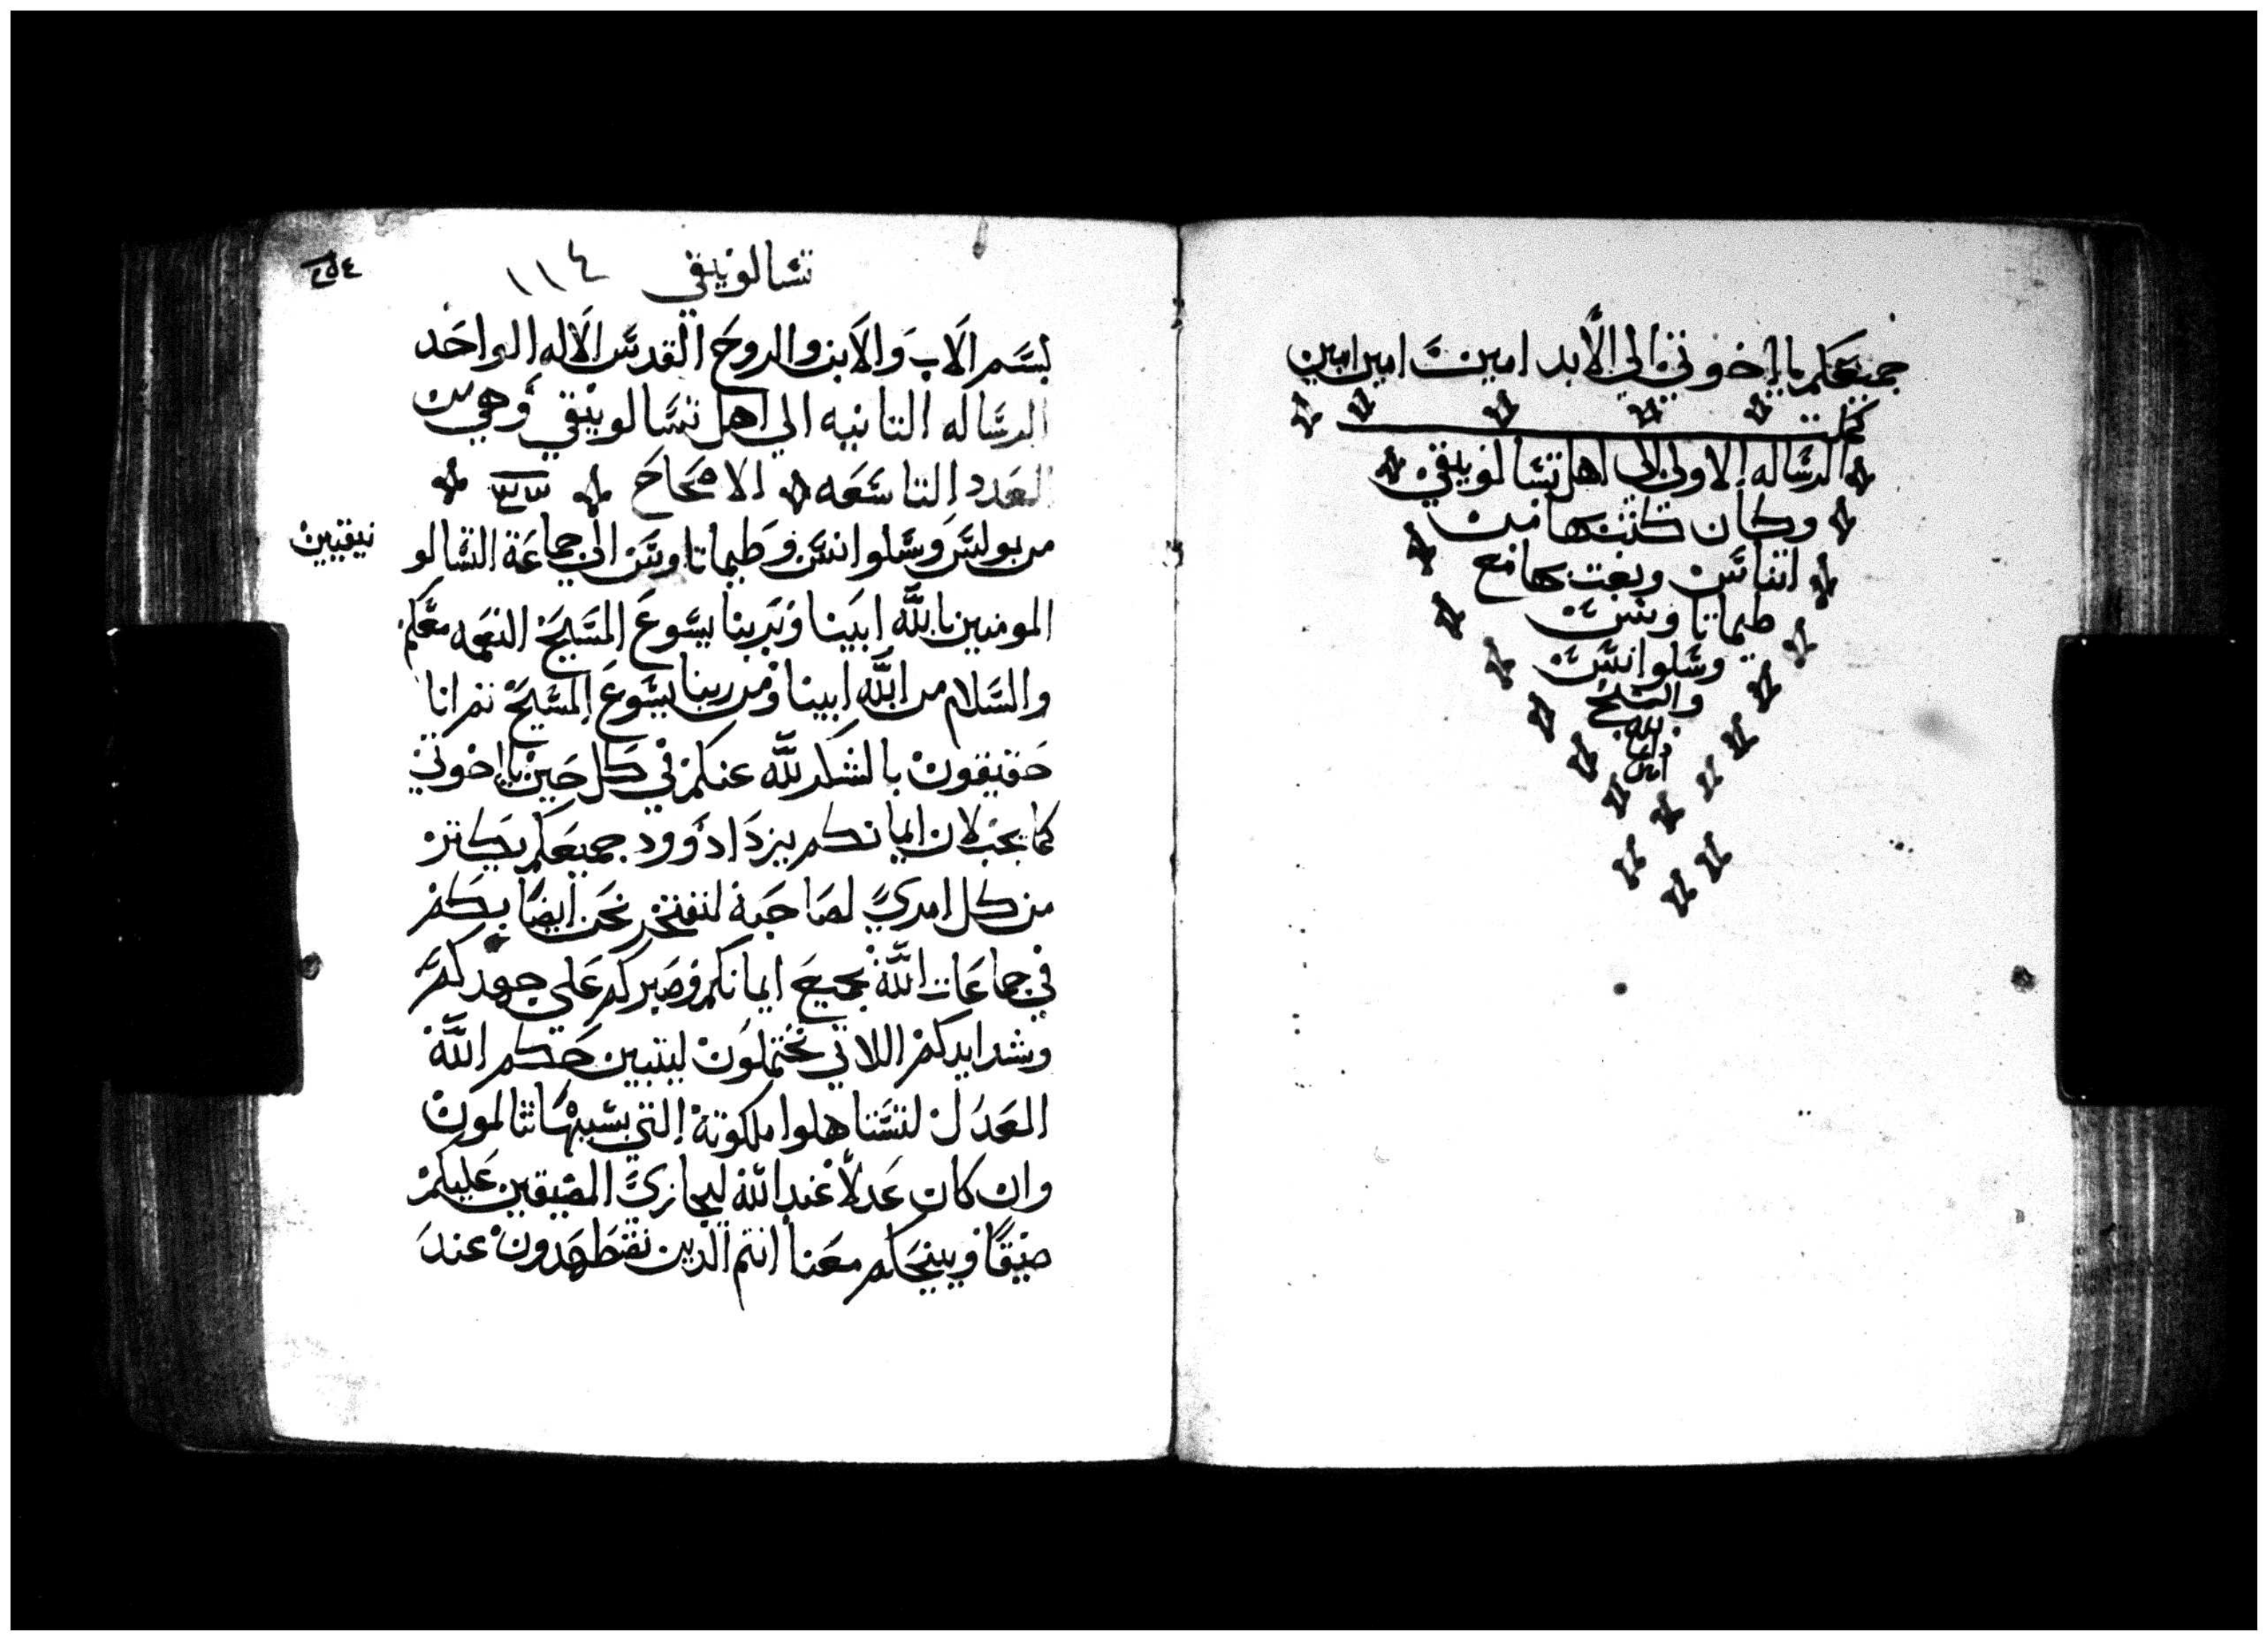 جميعكم يا اخوتي الي الابد امين امين امين
كملت
الرساله الاولي الي اهل تسالونيقي
وكان كتبها من
اتناس وبعت بها مع
طيماتاوس
وسلوانس
والسبح
لله
دايما
تسالونيقي ١١٤
بسم الاب والابن والروح القدس الاله الواحد
الرساله التانيه الي اهل تسالونيقي وهي من
العدد التاسعه الاصحاح
من بولس وسلوانس وطيماتاوس الي جماعة التسالو
نيقيين
المومنين بالله ابينا وبربنا يسوع المسيح النعمه معكم
والسلام من الله ابينا ومن ربنا يسوع المسيح نم انا
حقيقون بالشكر لله عنكم في كل حين يا اخوتي
كما يجب لان ايمانكم يزداد وود جميعكم يكتر
من كل امري لصاحبه لنفتخر نحن ايضا بكم
في جماعات الله بجميع ايمانكم وصبركم علي جهدكم
وشدايدكم اللاتي تحتملون ليتبين حكم الله
العدل لتستاهلوا ملكوته التي بسببها تتالمون
وان كان عدلا عند الله ليجازي المضيقين عليكم
ضيقا وينيحكم معنا انتم الدين تضطهدون عند